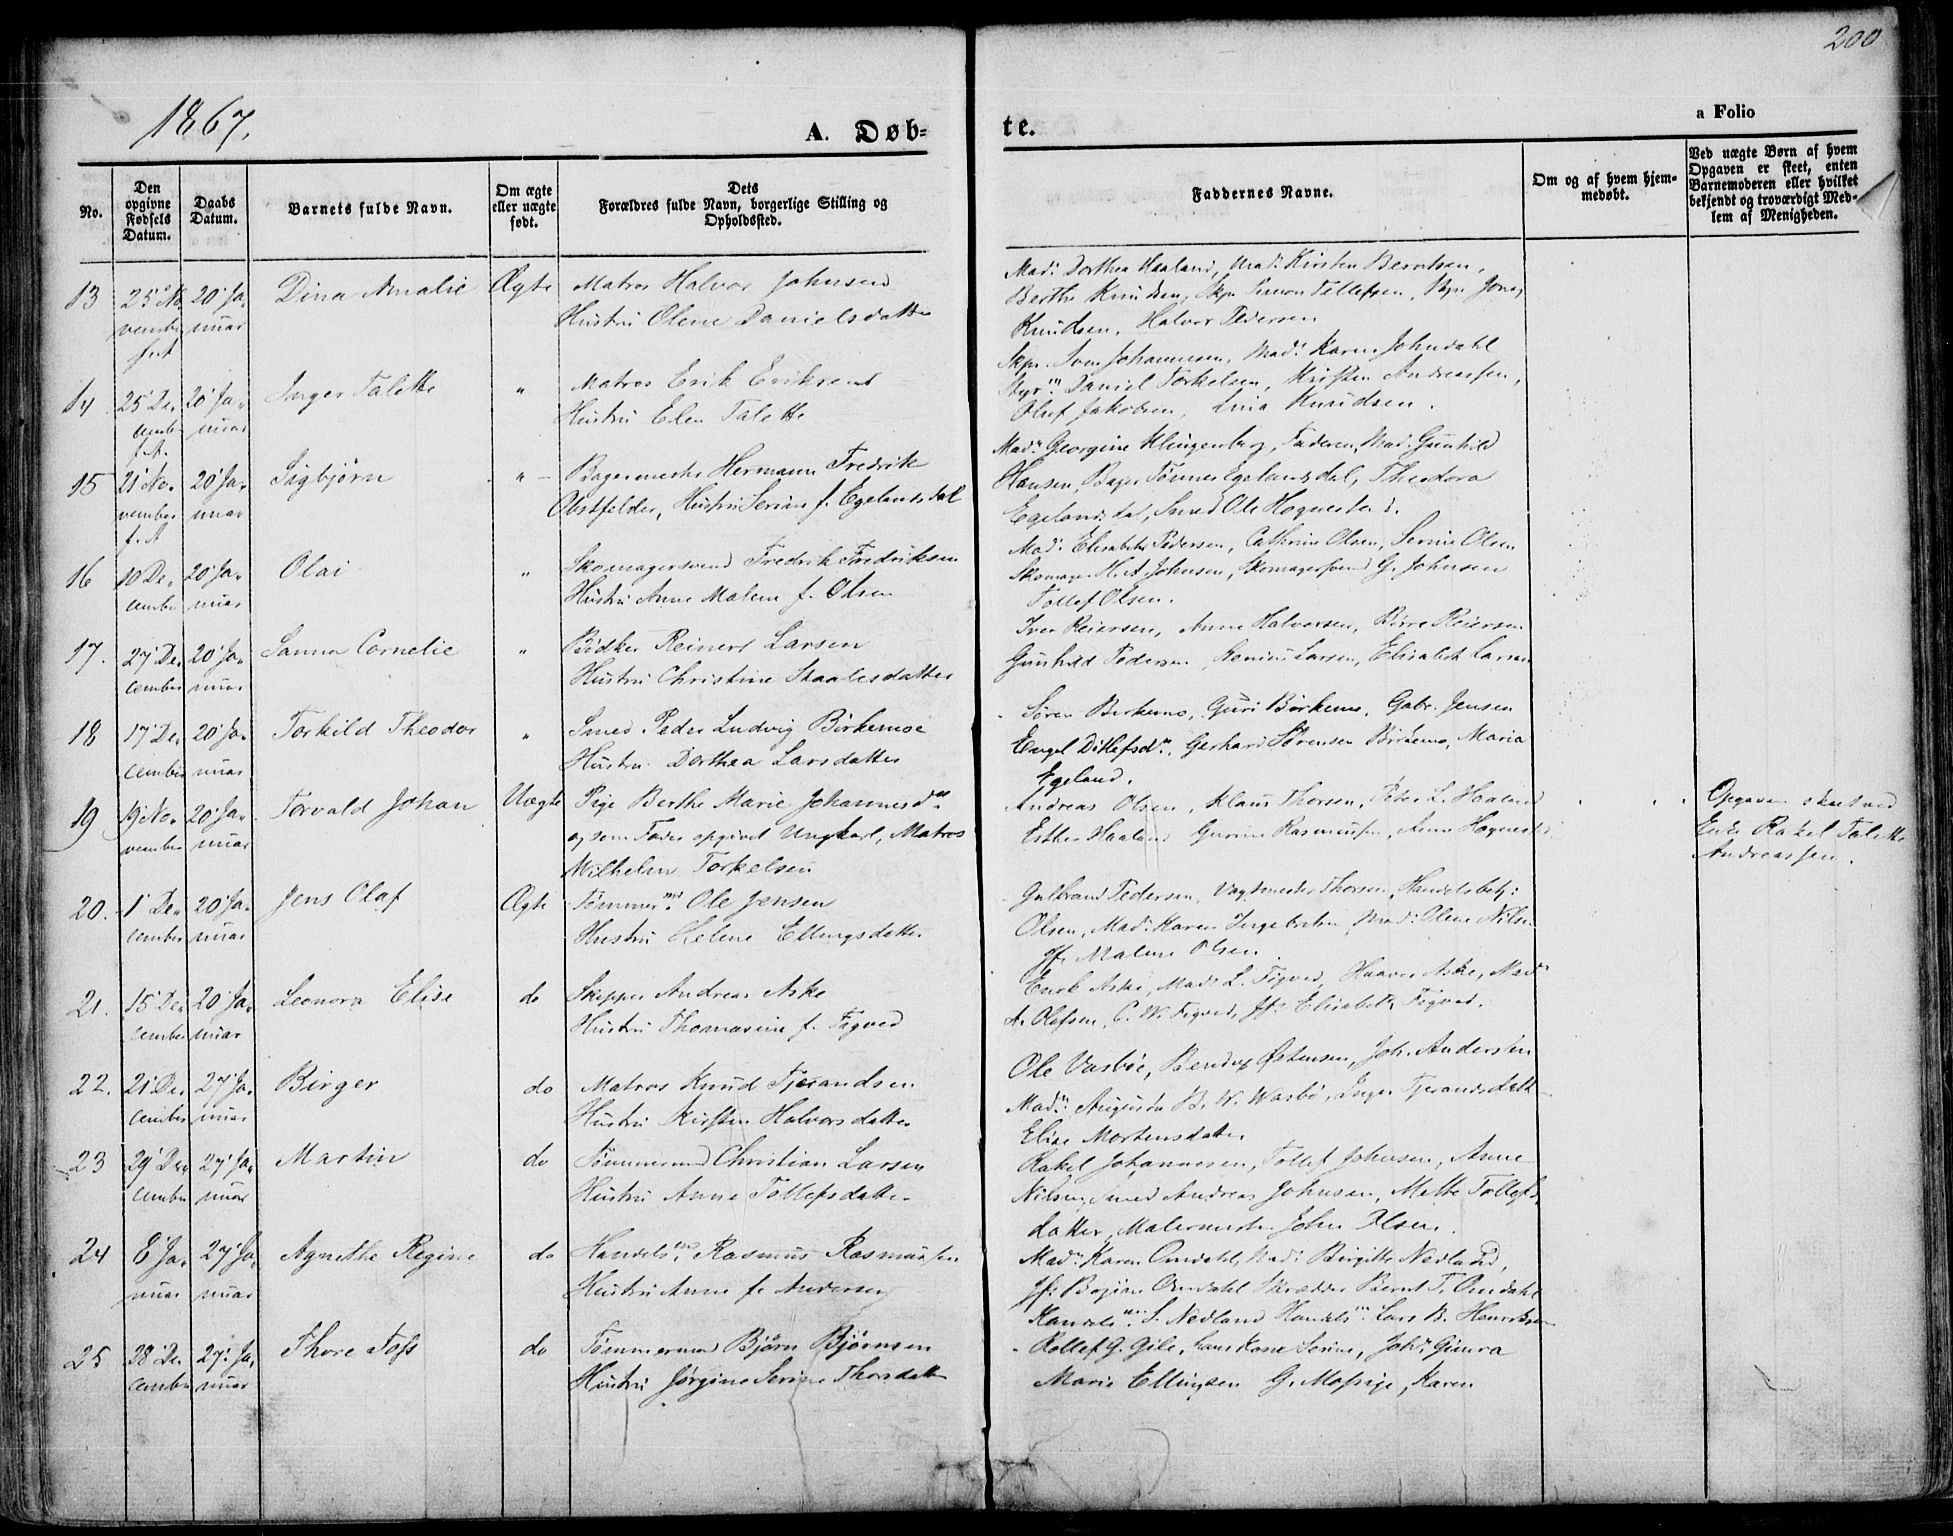 200
1867.
A. Døb-
te.
a Folio
No.
Den opgivne Fødsels Datum.
Daabs Datum.
Barnets fulde Navn.
Om ægte eller uægte født.
Dets Forældres fulde Navn, borgerlige Stilling og Opholdssted.
Faddernes Navne.
Om og af hvem hjem-
medøbt.
Ved uægte Børn af hvem
Opgaven er skeet, enten
Barnemoderen eller hvilket
bekjendt og troværdigt Med-
lem af Menigheden.
13 25' No- 20' Ja- Dina Amalie Ægte Matros Halvor Johnsen
vember nuar Hustru Olene Danielsdatter
f. A
Mad: Dorthea Haaland, Mad: Kirsten Berntsen,
Berthe Knudsen, Skpr Simon Tellefsen, Jonas
Knudsen, Halvor Pedersen
14 25' De- 20' Ja- Inger Talette " Matros Erik Eriksen
cember nuar Hustru Elen Talette
f. A.
Skpr. Sven Johannesen, Mad: Karen Johndahl
Styrm Daniel Torkelsen, Kirsten Andreassen,
Oluf Jakobsen, Lina Knudsen.
15 21' No- 20' Ja- Sigbjørn " Bagermester Hermann Fredrik
vember nuar Obstfelder, Hustru Serine f. Egelandsdal
f. A
Mad: Georgine Klingenberg, Faderen, Mad: Gunhild
Hansen, Bager Tønnes Egelandsdal, Theodora
Egelandsdal, Smed Ole Hognestad.
16 10 De- 20' Ja- Olai " Skomagersvend Fredrik Fredriksen
cember nuar Hustru Anne Malene f. Olsen
Mad: Elisabeth Pedersen, Cathrine Olsen, Serine Olsen
Skomager H. A Johnsen, Skomagersvend G. Johnsen
Tollef Olsen.
17. 27 De- 20' Ja- Sanna Cornelie " Bødker Reinert Larsen
cember nuar Hustru Christine Staalesdatter
Iver Reiersen, Anne Halvorsen, Børre Reiersen
Gunhild Pedersen, Larsen, Elisabeth Larsen
18 17' De- 20' Ja- Torkild Theodor " Smed Peder Ludvig Birkemoe
cember nuar Hustru Dorthea Larsdatter
Søren Birkemo, Guri Birkemo, Gabr. Jensen
Engel Ditlefsdr. Gerhard Sørensen Birkemo, Maria
Egeland.
19 19' No- 20' Ja- Torvald Johan Uægte Pige Berthe Marie Johannesdr
vember nuar og som Fader opgivet Ungkarl, Matros
Wilhelm Torkelsen
Andreas Olsen, Klaus Thorsen, Peter L. Haaland
Esther Haaland Gurine Rasmussen, Anne Hognestad
Opgaven skeet ved
Enke Rakel Talette
Andreassen.
20. 1' De- 20' Ja- Jens Olaf Ægte Tømmermd. Ole Jensen
cember nuar Hustru Helene Ellingsdatter
Gulbrand Pedersen, Vagtmester Thorsen, Handelsbetj:
Olsen, Mad: Karen Ingebretsen, Mad: Olene Nilsen
Jf: Malene Olsen.
21. 15' De- 20' Ja- Leonora Elise do Skipper Andreas Aske
cember nuar Hustru Thomasine f. Tigved
Enok Aske, Mad: L. Tigved, Haaver Aske, Mad:
A. Olefsen, C. W. Tigved, Jf: Elisabeth Tigved.
22. 21' De- 27' Ja- Birger do Matros Knud Tjerandsen
cember nuar Hustru Kirsten Halvorsdatter
Ole Vasbøe, Østensen, Joh. Andersen
Mad: Augusta B. W. Wasbø, Inger Tjerandsdatter
Elise Mortensdatter
23 29' De- 27' Ja- Martin do Tømmermand Christian Larsen
cember nuar Hustru Anne Tollefsdatter
Rakel Johannesen, Tollef Johnsen, Anne
Nilsen, Smed Andreas Johnsen, Mette Tollefs-
datter, Malermester John Olsen.
24 6' Ja- 27' Ja- Agnethe Regine do Handelsmd Rasmus Rasmussen
nuar nuar Hustru Anne f. Andersen
Mad: Karen Omdahl, Mad: Birgitte Nedland,
Jf: Omdahl Skrædder Bernt T. Omdahl
Handelsm: S. Nedland Handelsm: Lars B. Henriksen
25 28' De- 27' Ja- Thore Foss do Tømmermand Bjørn Bjørnsen
cember nuar Hustru Jørgine Serine Thorsdatter
Rollef G. Gile, Serine, Joh: Gimra
Marie Ellingsen G. Mossige, Karen